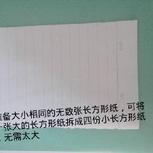 准备大小相同的无数张长方形纸，可将
一张大的长方形纸拆成四份小长方形纸
，无需太大